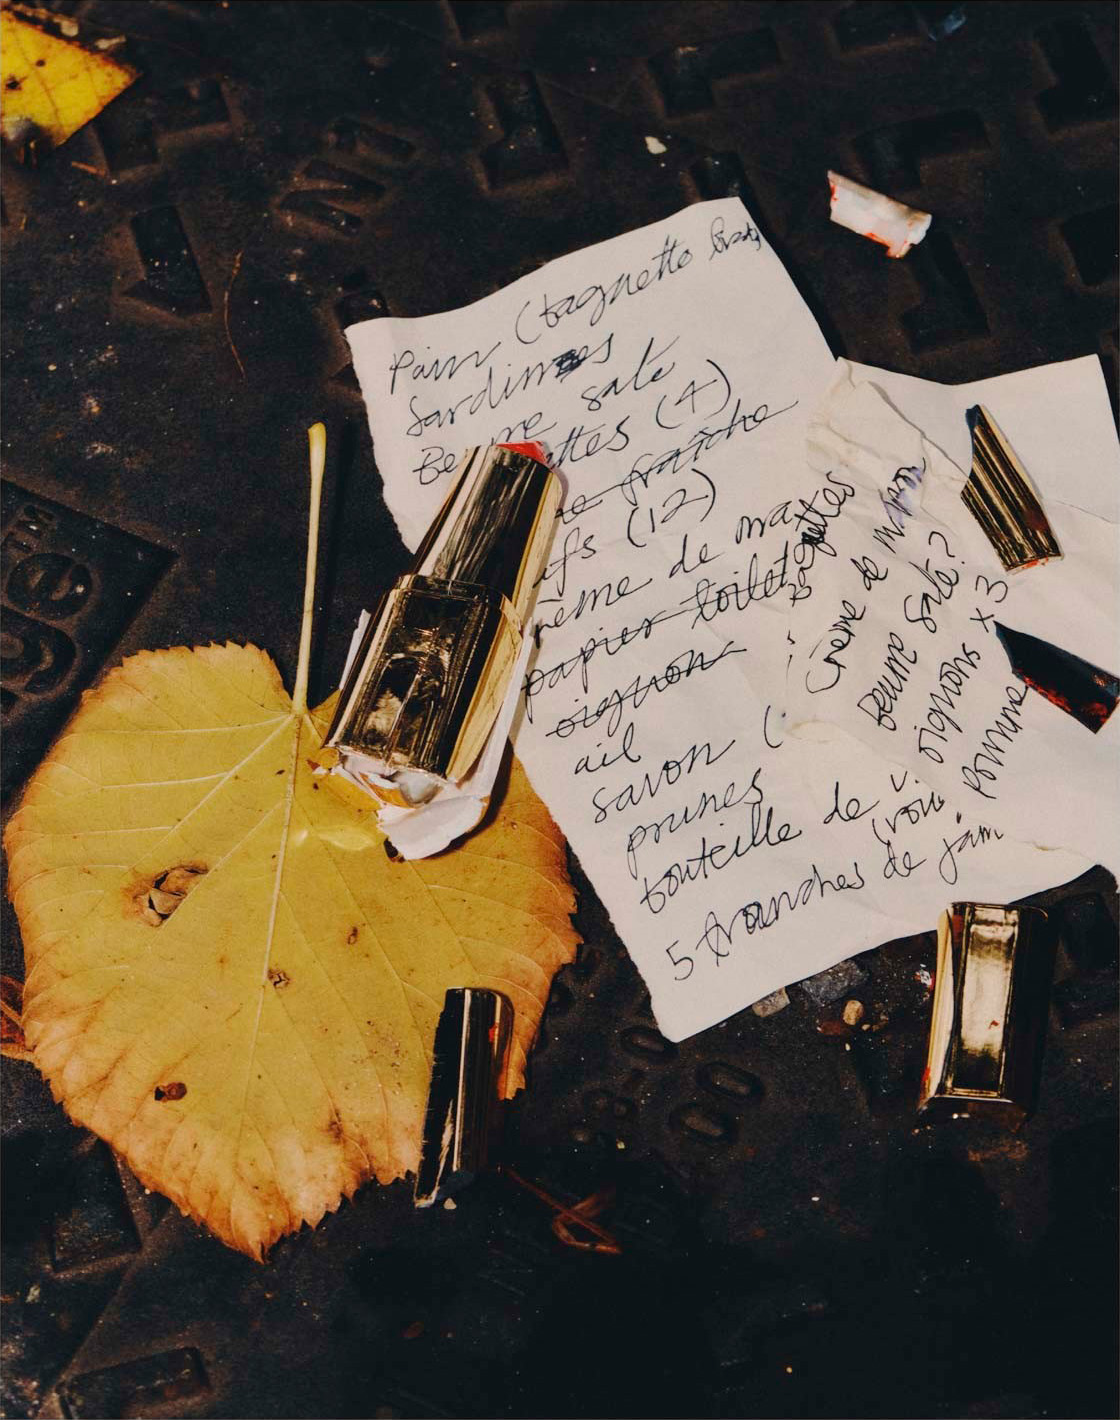 Pain (baguette
Sardines
Beurre salé
ttes (4)
re fraîche
ufs (12)
rème de ma
papier toilet
oignons
ail
savon (
prunes
bouteille de
5 tranches de jam
baguettes
Crème de marron
beurre salé?
oignons x3
pomme